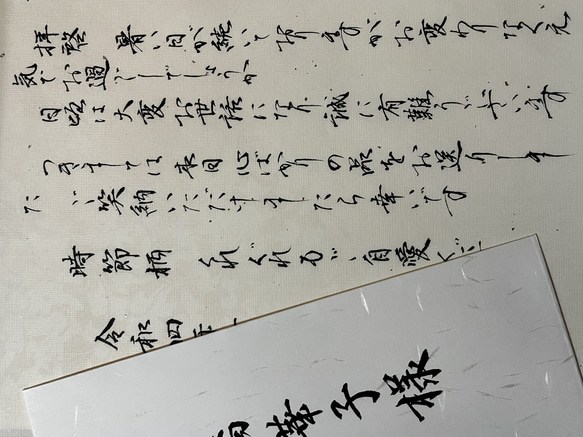 拝啓 暑い日が続いておりますがお変わりなく元
気でお過ごしでしょうか
日頃は大変お世話になり誠に有難うございます
つきましては本日心ばかりの品をお送りしまし
た ご笑納いただけましたら幸いです
時節柄 くれぐれもご自愛く
令和四年
華子様